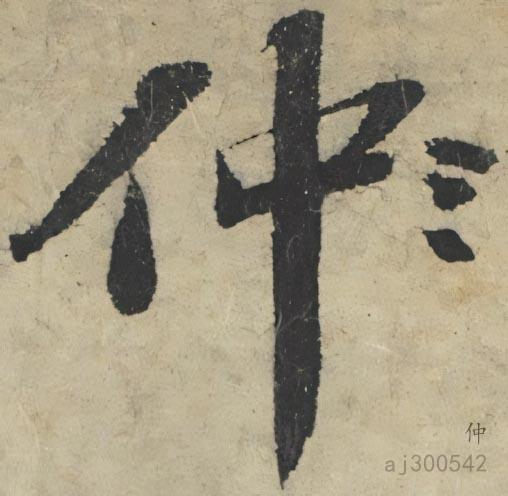 仲
仲
aj300542